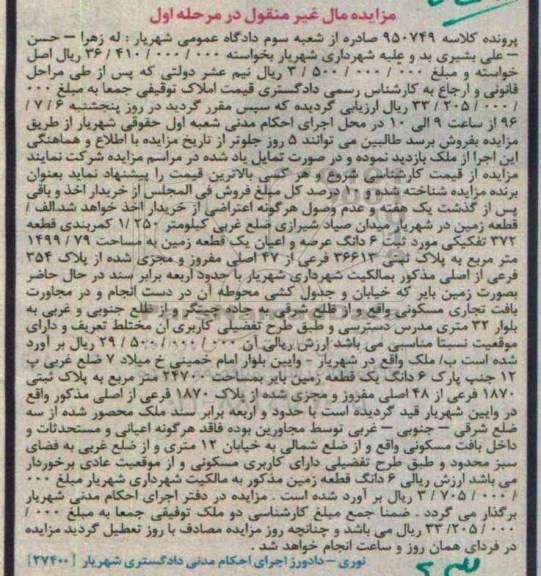 مزایده مال غیر منقول در مرحله اول
پرونده کلاسه ۹۵۰۷۴۹ صادره از شعبه سوم دادگاه عمومی شهریار : له زهرا – حسن
– علی بشیری بد و علیه شهرداری شهریار بخواسته ۰۰۰ / ۰۰۰ / ۴۱۰ / ۳۶ ریال اصل
خواسته و مبلغ ۰۰۰ / ۰۰۰ / ۵۰۰ / ۳ ریال نیم عشر دولتی که پس از طی مراحل
قانونی و ارجاع به کارشناس رسمی دادگستری قیمت املاک توقیفی جمعا به مبلغ ۰۰۰
/ ۰۰۰ / ۲۰۵ / ۳۳ ریال ارزیابی گردیده که سپس مقرر گردید در روز پنجشنبه ۶ / ۷ /
۹۶ از ساعت ۹ الی ۱۰ در محل اجرای احکام مدنی شعبه اول حقوقی شهریار از طریق
مزایده بفروش برسد طالبین می توانند ۵ روز جلوتر از تاریخ مزایده با اطلاع و هماهنگی
این اجرا از ملک بازدید نموده و در صورت تمایل یاد شده در مراسم مزایده شرکت نمایند
مزایده از قیمت کارشناسی شروع و هر کسی بالاترین قیمت را پیشنهاد نماید بعنوان
برنده مزایده شناخته شده و ۱۰ درصد کل مبلغ فروش فی المجلس از خریدار اخذ و باقی
پس از گذشت یک هفته و عدم وصول هرگونه اعتراضی از خریدار اخذ خواهد شد.الف /
قطعه زمین در شهریار میدان صیاد شیرازی ضلع غربی کیلومتر ۲۵۰ /۱ کمربندی قطعه
۳۷۲ تفکیکی مورد ثبت ۶ دانگ عرصه و اعیان یک قطعه زمین به مساحت ۷۹ / ۱۴۹۹
متر مربع به پلاک ثبتی ۳۶۶۱۳ فرعی از ۴۷ اصلی مفروز و مجزی شده از پلاک ۳۵۴
فرعی از اصلی مذکور بمالکیت شهرداری شهریار با حدود اربعه برابر سند در حال حاضر
بصورت زمین بایر که خیابان و جدول کشی محوطه آن در دست انجام و در مجاورت
بافت تجاری مسکونی واقع و از ظلع شرقی به جاده چیتگر و از ظلع جنوبی و غربی به
بلوار ۳۲ متری مدرس دسترسی و طبق طرح تفصیلی کاربری آن مختلط تعریف و دارای
موقعیت نسبتا مناسبی می باشد ارزش ریالی آن ۰۰۰ / ۰۰۰ / ۵۰۰ / ۲۹ ریال بر آورد
شده است ب/ ملک واقع در شهریار – وایین بلوار امام خمینی خ میلاد ۷ ضلع غربی پ
۱۲ جنب پارک ۶ دانگ یک قطعه زمین بایر بمساحت ۲۴۷۰ متر مربع به پلاک ثبتی
۱۸۷۰ فرعی از ۴۸ اصلی مفروز و مجزی شده از پلاک ۱۸۷۰ فرعی از اصلی مذکور واقع
در وایین شهریار قید گردیده است با حدود و اربعه برابر سند ملک محصور شده از سه
ضلع شرقی – جنوبی – غربی توسط مجاورین بوده فاقد هرگونه اعیانی و مستحدثات و
داخل بافت مسکونی واقع و از ضلع شمالی به خیابان ۱۲ متری و از ضلع غربی به فضای
سبز محدود و طبق طرح تفصیلی دارای کاربری مسکونی و از موقعیت عادی برخوردار
می باشد ارزش ریالی ۶ دانگ قطعه زمین مذکور به مالکیت شهرداری شهریار مبلغ ۰۰۰
/ ۰۰۰ / ۷۰۵ / ۳ ریال بر آورد شده است . مزایده در دفتر اجرای احکام مدنی شهریار
برگذار می گردد . ضمنا جمع مبلغ کارشناسی دو ملک توقیفی جمعا به مبلغ ۰۰۰ /
۰۰۰ / ۲۰۵/ ۳۳ ریال می باشد و چنانچه روز مزایده مصادف با روز تعطیل گردید مزایده
در فردای همان روز و ساعت انجام خواهد شد .
نوری – دادورز اجرای احکام مدنی دادگستری شهریار [۲۷۴۰۰]